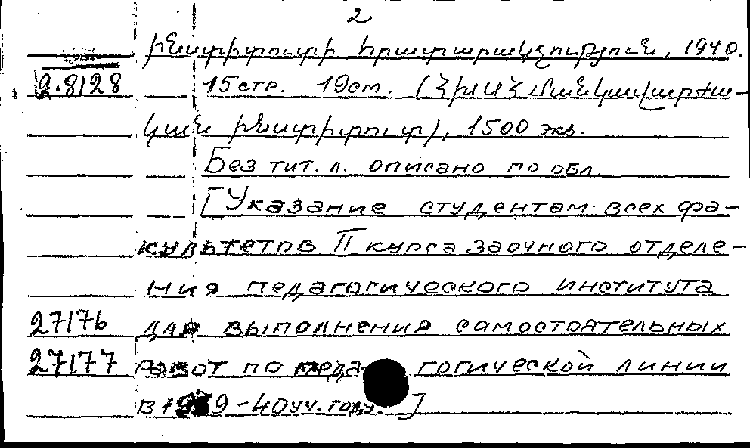 2
ինստիտուտի հրատարակչություն, 1940.
2.8128 15стр. 19см. (ՀԽՍՀ Մանկավարժա-
կան ինստիտուտ), 1500 экз.
Без тит. л. описано по обл.
[Указание студентам всех фа-
культетов II курса заочного отделе-
ния педагогического института
27176 для выполнения самостоятельных
27177 работ по педагогической линии
в 1939-40 уч. году.]